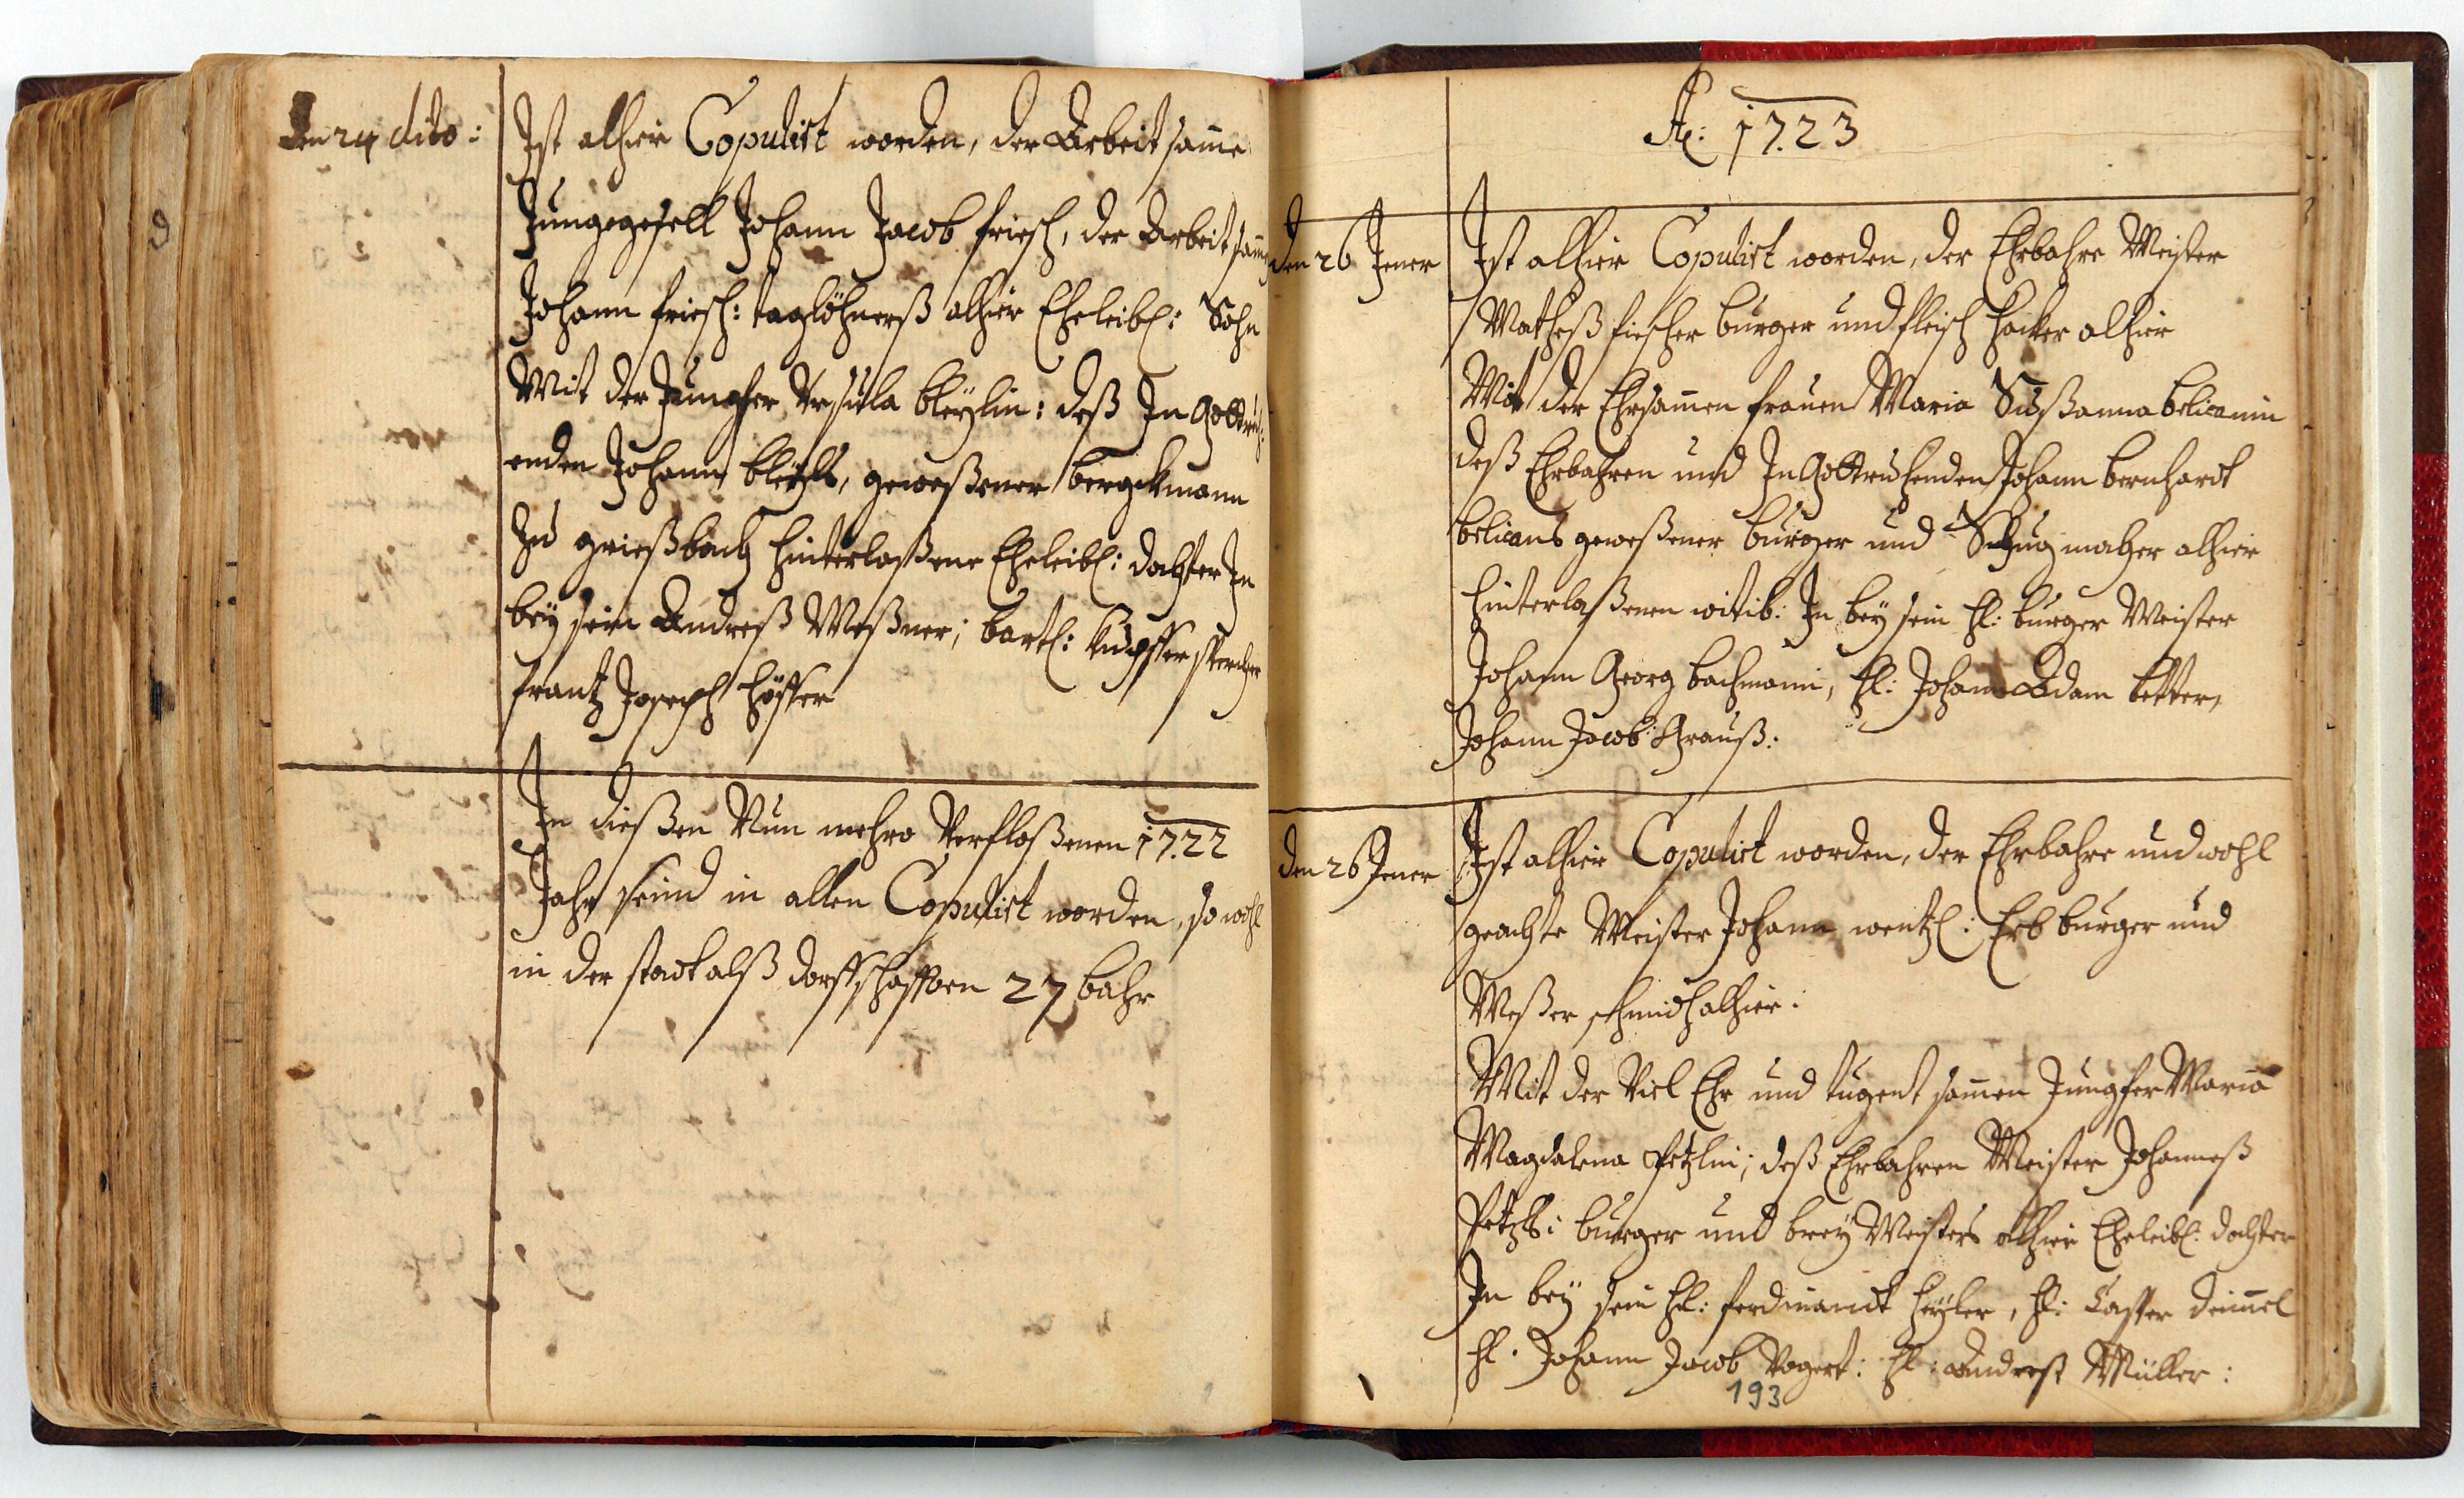 Den 24 dito:
Ist alhier Copulirt worden, der Arbeitsame
Junggesell Johann Jacob friesch, der Arbeitsam
Johann friesch: taglöhnerß alhier Eheleibl: Sohn
Mit der Jungfer Ursula bleylin: deß In Gottruh:
enden Johann bleyls, geweßener bergckmann
Zu grießbach hinterlaßene Eheleibl: dochter In
bey sein Andreß Meßner; bartl: Kupffer
frantz Joseph höffer
In dießen Nun mehro Verfloßenen 1722
Jahr seind in allen Copulirt worden, so wohl
in der stadt alß dorffschafften 27 bahr
A: 1723
den 26 Jener
Ist alhier Copulirt worden, der Ehrbahre Meister
Matheß fischer burger und fleisch hacker alhier
Mit der Ehrsamen frauen Maria Sußanna belicanin
deß Ehrbahren und In Gottruhenden Johann bernhardt
belicans geweßener burger und Schugmaher alhier
hinterlaßenen witib: In bey sein H: burger Meister
Johann Georg bachmann, H: Johann Adam better,
Johann Jacob Grauß:
den 26 Jener
Ist alhier Copulirt worden, der Ehrbahre und wohl
geachte Meister Johann wentzl: Erb burger und
Meßer schmidt alhier:
Mit der Viel Ehr und tugent samen Jungfer Maria
Magdalena Petzlin; deß Ehrbahren Meister Johanneß
Petzls: burger und brey Meisters alhier Eheleibl: dochter
In bey sein H: ferdinandt heyler, H: Casper deimel
H: Johann Jacob Vogert: H: Andreß Müller:
193